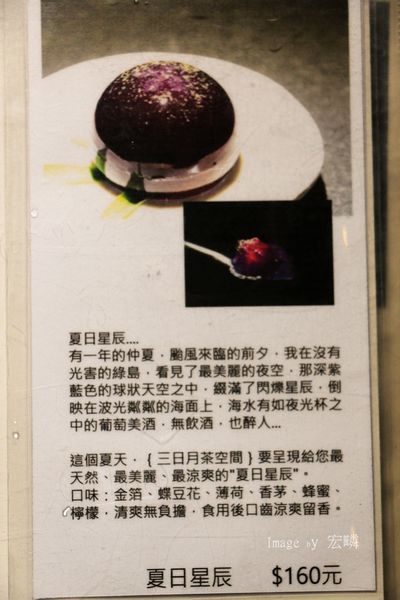 夏日星辰....
有一年的仲夏，颱風來臨的前夕，我在沒有
光害的綠島，看見了最美麗的夜空，那深紫
藍色的球狀天空之中，綴滿了閃爍星辰，倒
映在波光粼粼的海面上，海水有如夜光杯之
中的葡萄美酒，無飲酒，也醉人...
這個夏天，{三日月茶空間}要呈現給您最
天然、最美麗、最涼爽的"夏日星辰"。
口味：金箔、蝶豆花、薄荷、香茅、蜂蜜、
檸檬，清爽無負擔，食用後口齒涼爽留香。
Image by 宏麟
夏日星辰 $160元